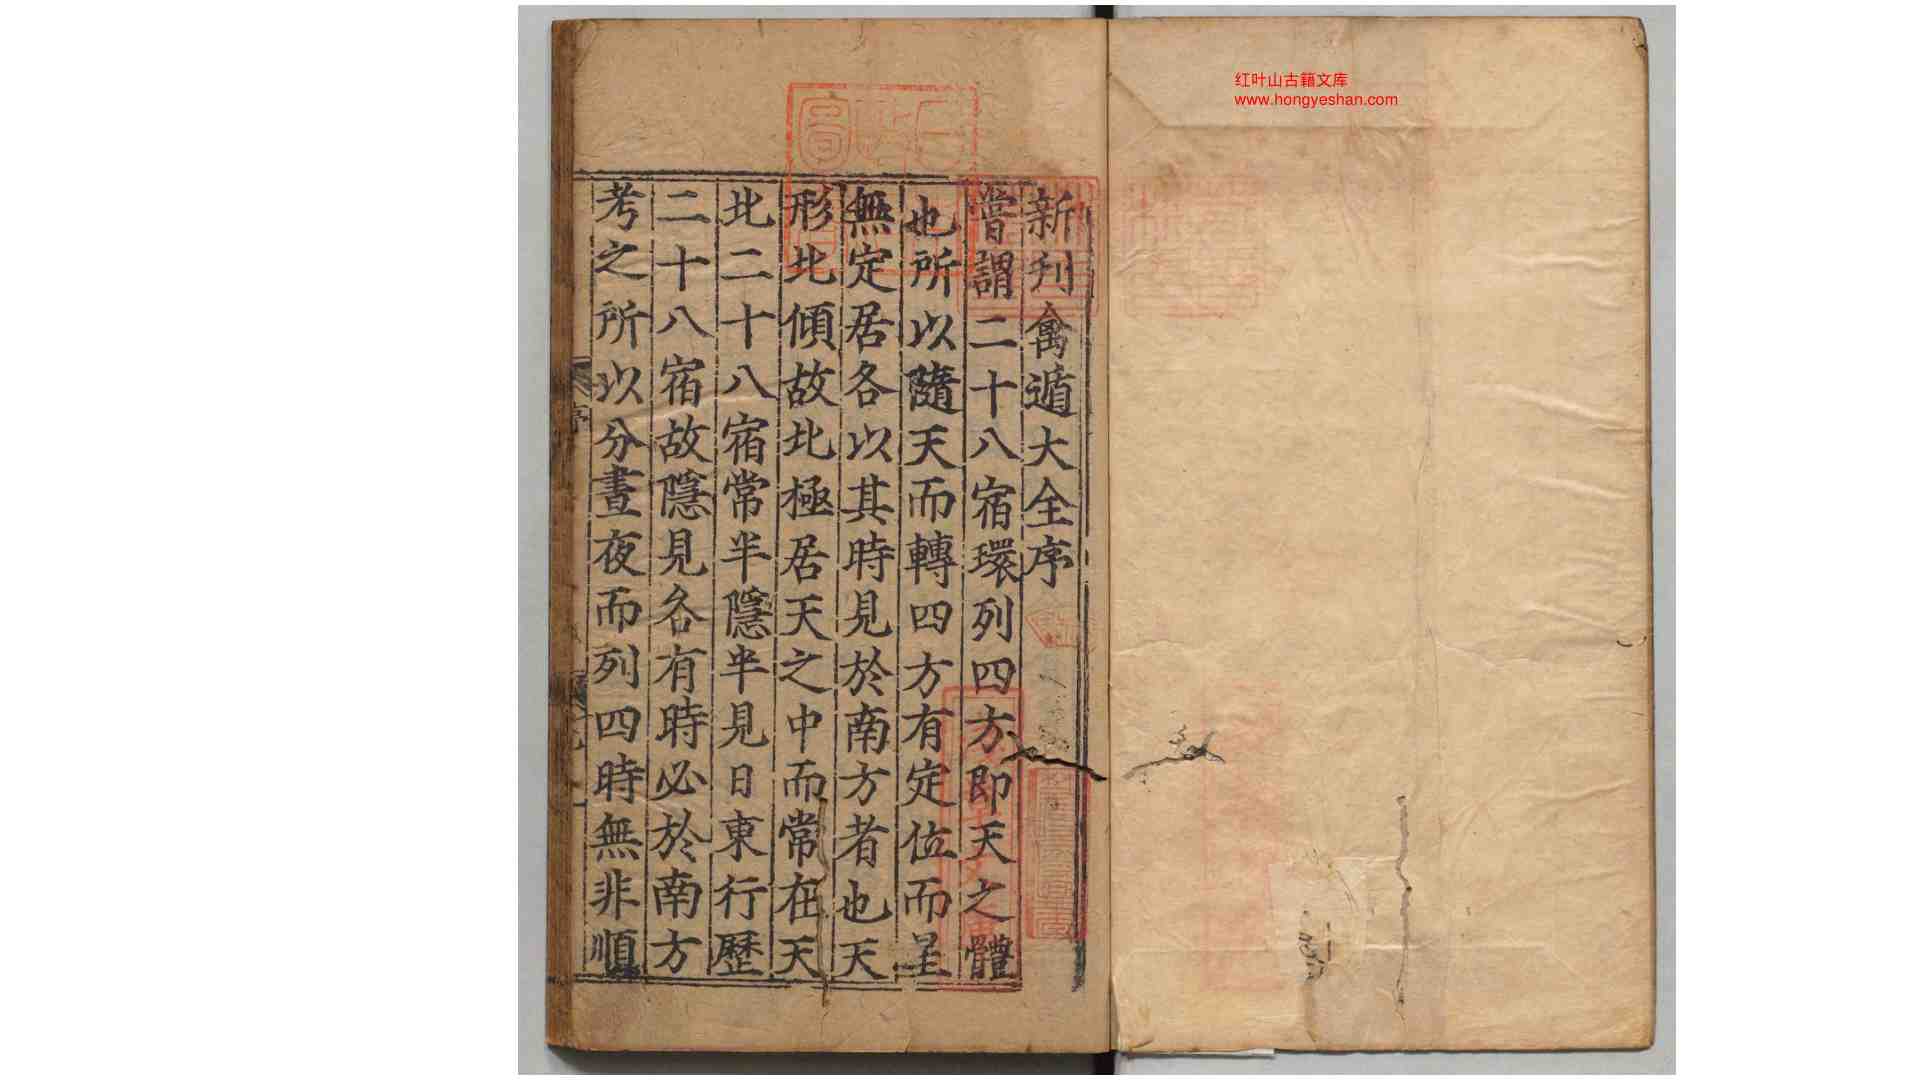 红叶山古籍文库
www.hongyeshan.com
新刋禽遁大全序
嘗謂二十八宿環列四方即天之體
也所以隨天而轉四方有定位而星
無定居各以其時見於南方者也天
形北傾故北極居天之中而常在天
北二十八宿常半隱半見日東行歷
二十八宿故隱見各有時必於南方
考之所以分晝夜而列四時無非順
序